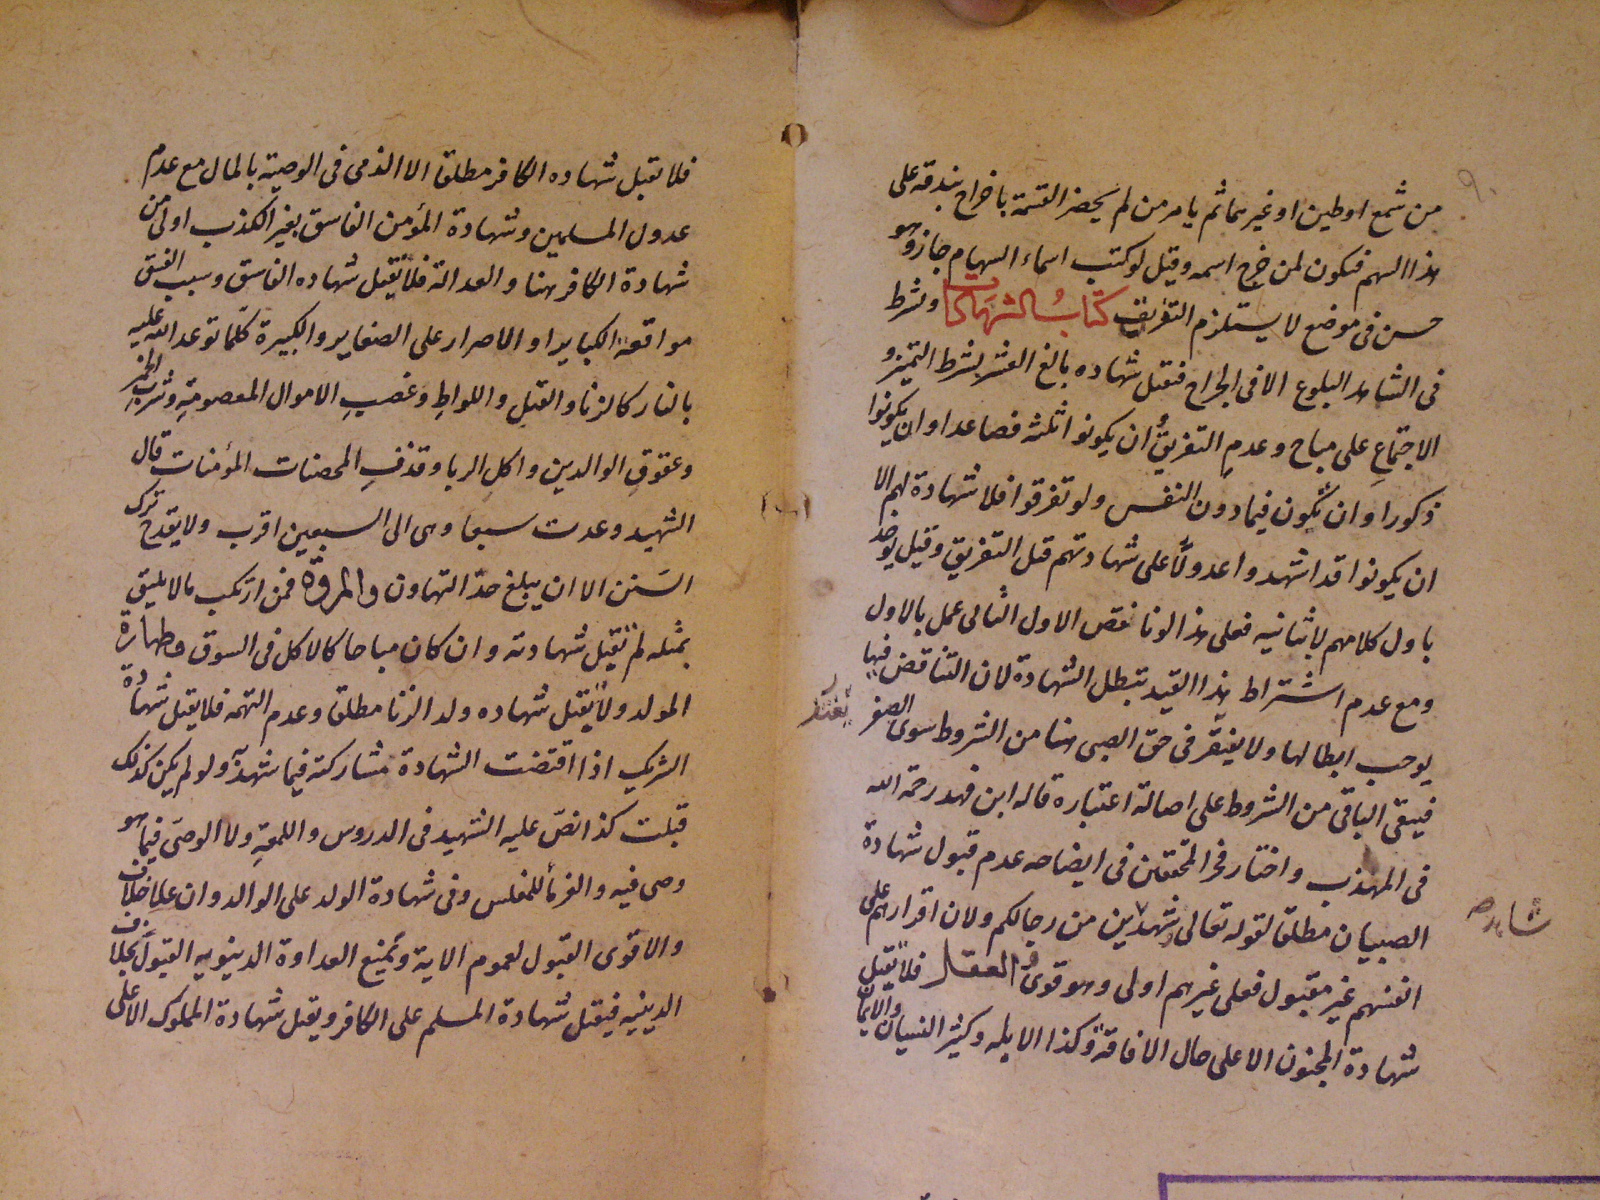 ٩٠
من شمع اوطين اوغيرهما ثم يامر من لم يحضر القسمة باخراج بندقه على
هذا السهم فيكون لمن خرج اسمه وقيل لوكتب اسماء السهام جاز وهو
حسن فى موضع لا يستلزم التفريق كتاب الشهادات وشرط
فى الشاهد البلوع الا فى الجراح فتقبل شهاده بالغ العشر بشرط التميز و
الاجتماعِ على مباح وعدمِ التفريق وان يكونوا ثلثه فصاعدا وان يكونوا
ذكورا وان تكون فيما دون النفس ولو تفرقوا فلا شهادة لهم الا
ان يكونوا قد اشهدوا عدولا على شهادتهم قبل التفريق وقيل يوخذ
باول كلامهم لا ثانيه فعلى هذا لو ناقض الاول الثانى عمل بالاول
ومع عدم اشتراط هذا القيد تبطل الشهادة لان التناقض فيها
يوجب ابطالها ولا يفتقر فى حق الصبى هنا من الشروط سوى الصغر
فيبقى الباقى من الشروط على اصالة اعتباره قاله ابن فهد رحمه الله
فى المهذب واختار فخر المحققين فى ايضاحه عدم قبول شهادة
الصبيان مطلقا لقوله تعالى شهدين من رجالكم ولان اقرارهم على
شاهد ص
انفسهم غير مقبول فعلى غيرهم اولى وهو قوى والعقل فلا تقبل
شهادة المجنون الا على حال الافاقة وكذا الابله وكثير النسيان والايمان
فلا تقبل شهاده الكافر مطلقا الا الذمى فى الوصية بالمال مع عدم
عدول المسلمين وشهادة المؤمن الفاسق بغير الكذب اولى من
شهادة الكافر هنا والعدالة فلا تقبل شهاده الفاسق وسبب الفسق
مواقعة الكباير او الاصرار على الصغاير والكبيرة كلما توعد الله عليه
بالنار كالزنا والقتلِ واللواطِ وغصبِ الاموال المعصومةِ وشربِ الخمرِ
وعقوقِ الوالدين واكلِ الربا وقذفِ المحصنات المؤمنات قال
الشهيد وعدت سبعا وهى الى السبعين اقرب ولا يقدح ترك
السَنن الا ان يبلغ حدّ التهاون والمروّة فمن ارتكب مالا يليق
بمثله لم تقبل شهادته وان كان مباحا كالاكل فى السوق وطهارة
المولد ولا تقبل شهاده ولد الزنا مطلقا وعدم التهمه فلا يقبل شهادة
الشريك اذا اقتضت الشهادة مشاركته فيما شهد به ولو لم يكن كذلك
قبلت كذا نصّ عليه الشهيد فى الدروس واللمعةِ ولا الوصىّ فيما هو
وصى فيه والغرماء للمفلس وفى شهادة الولد على الوالد وان علا خلاف
والاقوى القبول لعموم الاية وتمنع العداوة الدنيويه القبول بخلاف
الدينيه فيقبل شهادة المسلم على الكافر ويقبل شهادة المملوك الا على